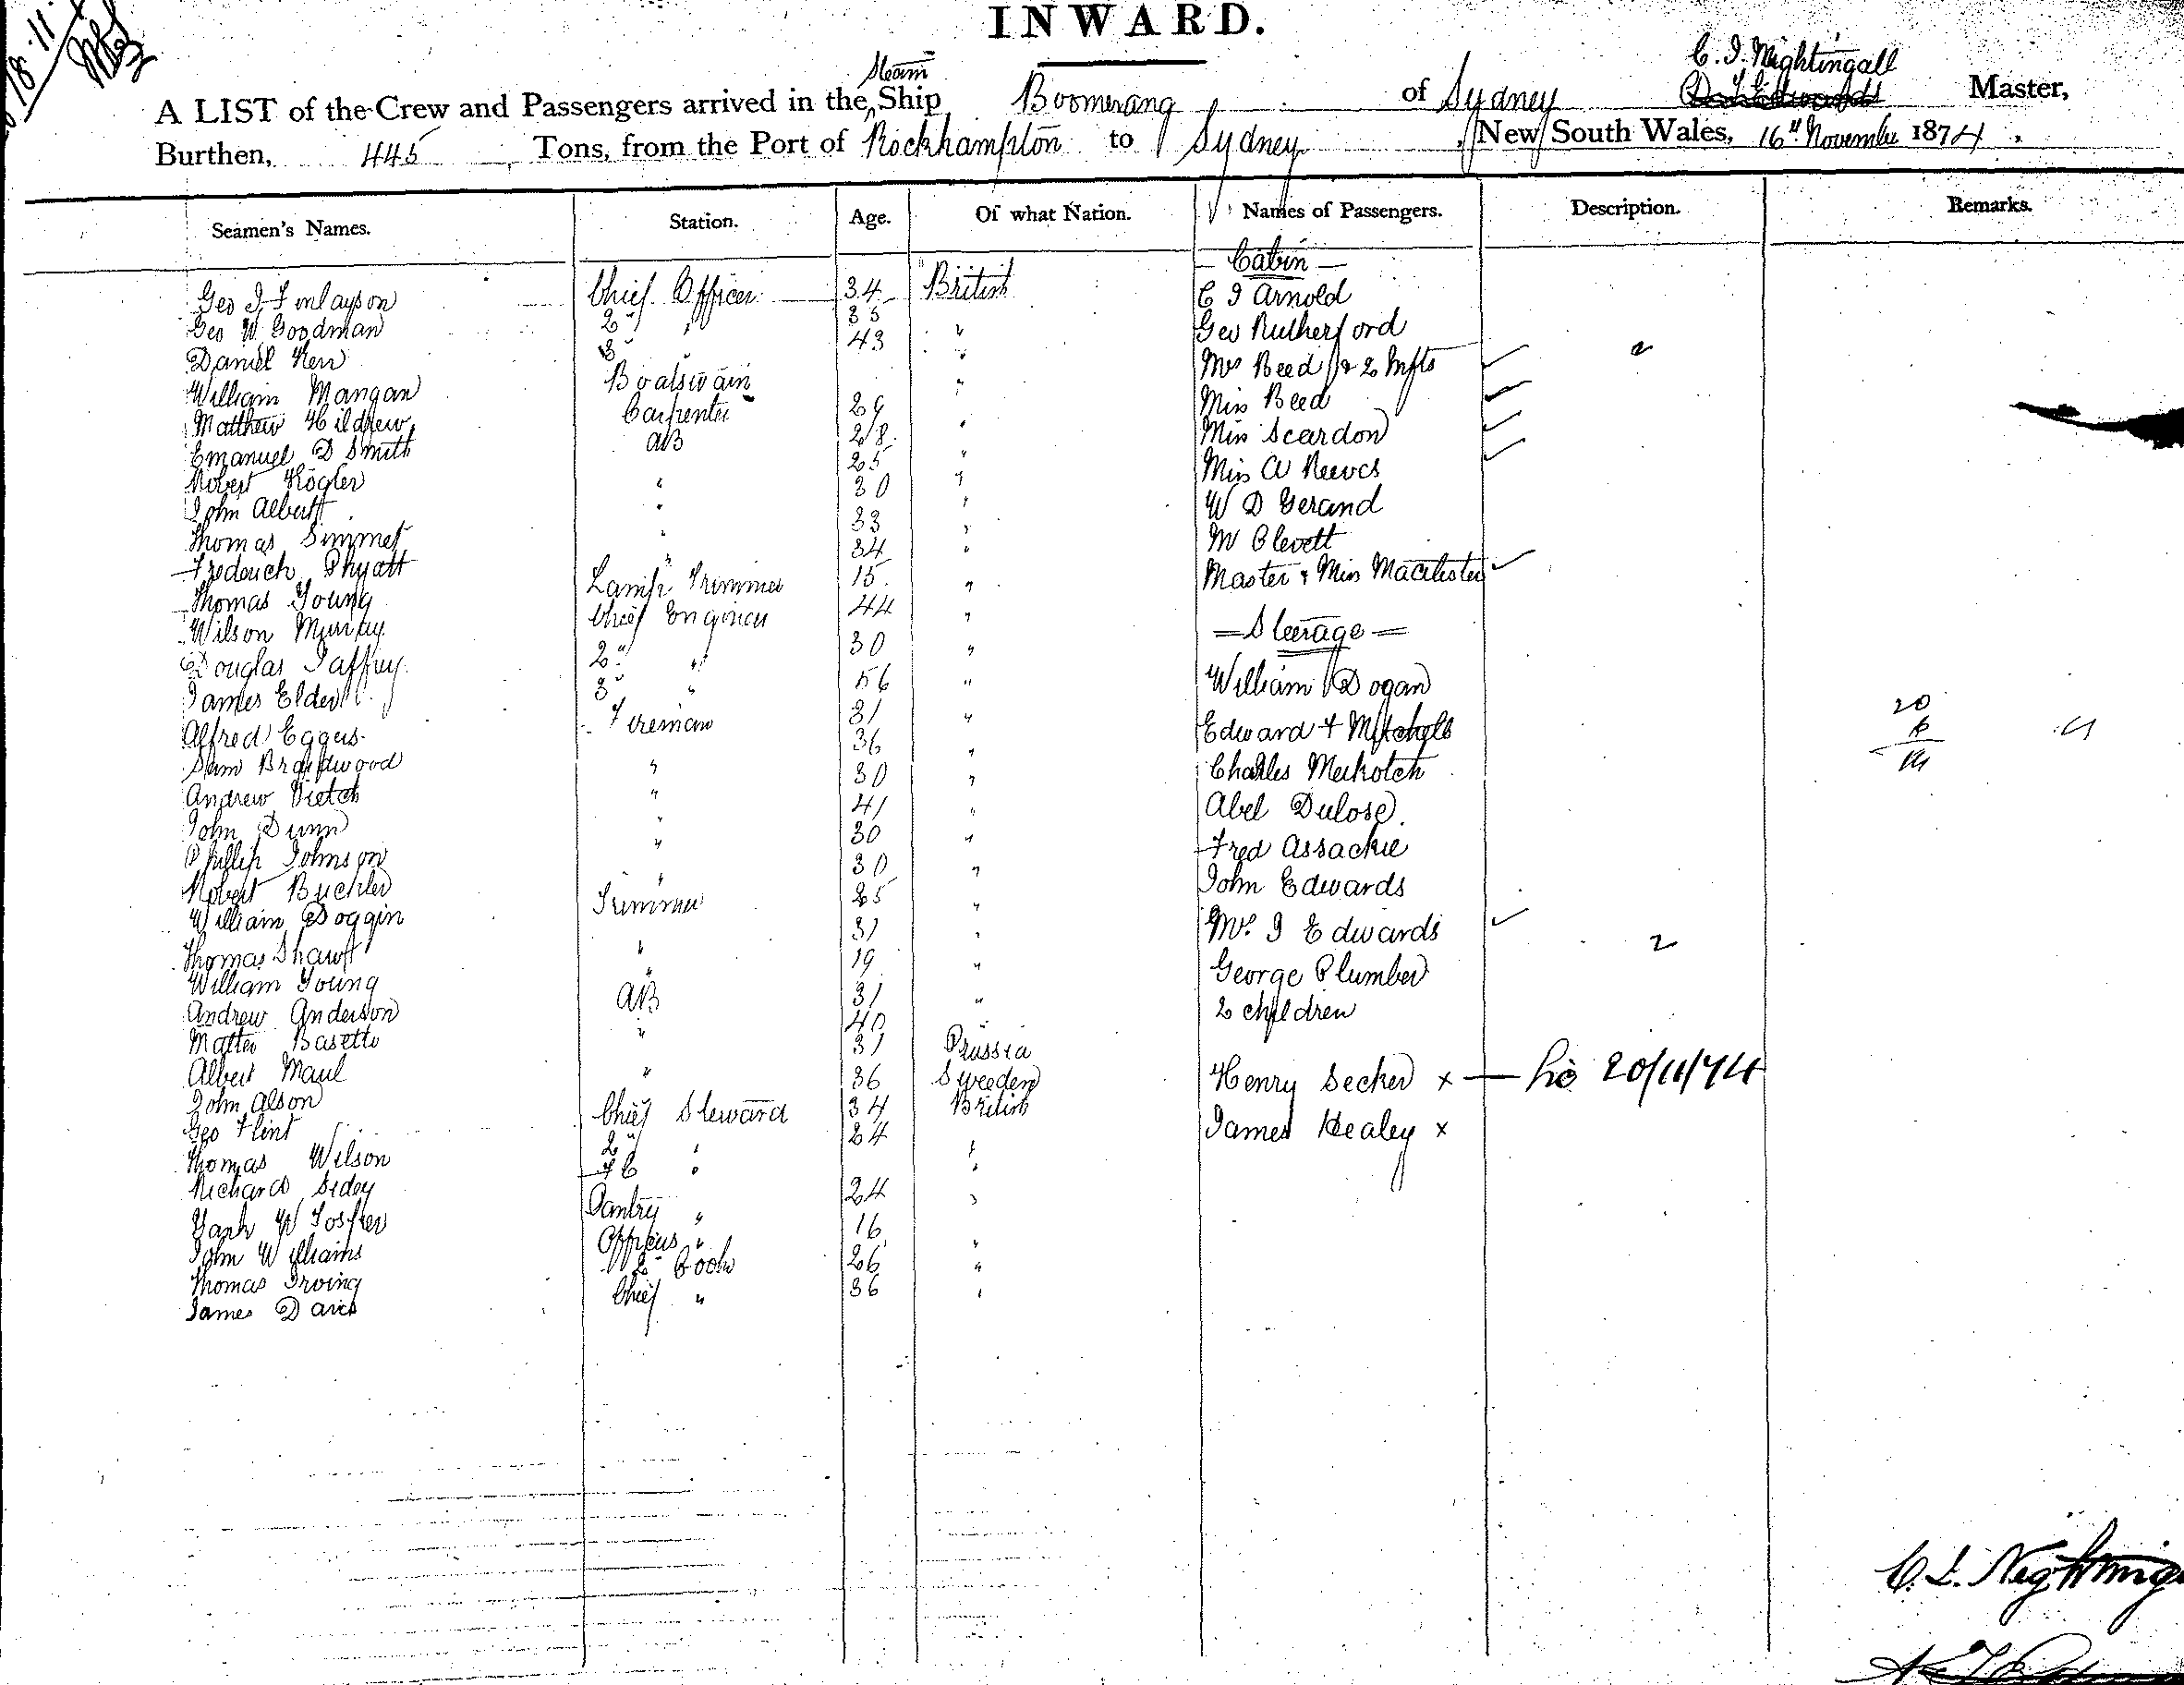 18.11.
INWARD.
Steam
C. J. Nightingall
A LIST of the Crew and Passengers arrived in the Ship Boomerang of Sydney Master,
Burthen, 445 Tons, from the Port of Rockhampton to Sydney, New South Wales, 16th November 1874.
Seamen's Names. Station. Age. Of what Nation. Names of Passengers. Description. Remarks.
Cabin
Geo J Finlayson Chief Officer 34 British C J Arnold
Geo W Goodman 2nd " 35 Geo Rutherford
Daniel Kerr 3rd " 43 " Mrs Beed & 2 Infts 2
William Mangan Boatswain " Miss Beed
Matthew Hildrew Carpenter 29 " Miss Scardon
Emanuel D Smith AB 28 " Miss A Reeves
Robert Kogler " 25 " W D Gerand
John Albert " 30 " M Clevett
Thomas Simmet " 33 " Master & Miss Macalister
Frederick Phyatt " 34 "
Thomas Young Lamp Trimmer 15 "
Wilson Murray Chief Engineer 44 " Steerage
Douglas Jaffray 2nd " 30 " William Dogan
James Elder 3rd " 56 " Edward F Mitchell 20
Alfred Eggers Fireman 31 " Charles Meikotch 6
Sam Braidwood " 36 " Abel Dulose 14
Andrew Vietch " 30 " Fred Assackie
John Dunn " 41 " John Edwards
Phillip Johnson " 30 " Mrs J Edwards
Robert Buchler " 30 " George Plumber 2
William Doggin Trimmer 25 " 2 children
Thomas Shaw " 31 " Henry Secker x 20/11/74
William Young " 19 " James Healey x
Andrew Anderson AB 31 "
Matteo Basetto " 40 "
Albert Maul " 31 Prussia
John Alson " 36 Sweeden
Geo Flint Chief Steward 34 British
Thomas Wilson 2nd " 24 "
Richard Sidey FC " "
W Foster Pantry " 24 "
John Williams Officers " 16 "
Thomas Irving 2nd Cook 26 "
James Davis Chief " 36 "